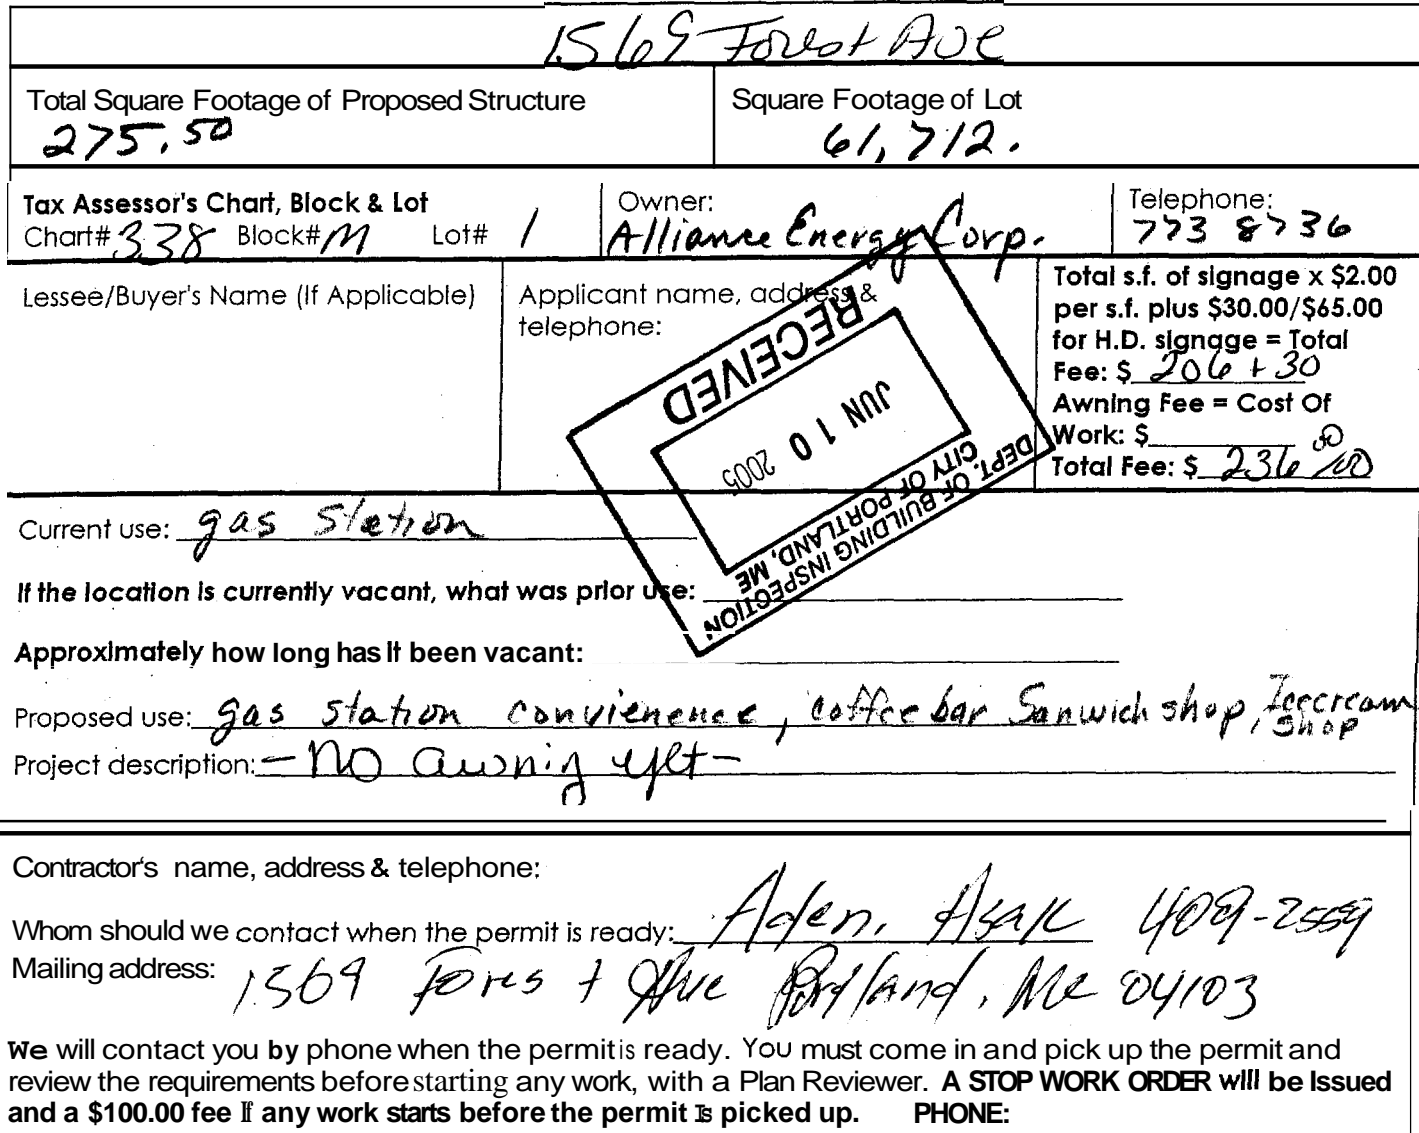 1569 Forest Ave
Total Square Footage of Proposed Structure
275.50
Square Footage of Lot
61,712.
Tax Assessor's Chart, Block & Lot
Chart# 338 Block# M Lot# 1
Owner:
Alliance Energy Corp.
Telephone:
773 8736
Lessee/Buyer's Name (If Applicable)
Applicant name, address &
telephone:
Total s.f. of signage x $2.00
per s.f. plus $30.00/$65.00
for H.D. signage = Total
Fee: $ 206 + 30
Awning Fee = Cost Of
Work: $
Total Fee: $ 236 00/00
RECEIVED
JUN 10 2005
DEPT. OF BUILDING INSPECTION
CITY OF PORTLAND, ME
Current use: gas station
If the location is currently vacant, what was prior use:
Approximately how long has it been vacant:
Proposed use: gas station convienence, coffee bar Sanwich shop, Icecream
shop
Project description: - No awnig yet -
Contractor's name, address & telephone:
Whom should we contact when the permit is ready: Aden, Asak 409-2559
Mailing address: 1569 Forest Ave Portland, Me 04103
We will contact you by phone when the permit is ready. You must come in and pick up the permit and
review the requirements before starting any work, with a Plan Reviewer. A STOP WORK ORDER will be issued
and a $100.00 fee if any work starts before the permit is picked up. PHONE: